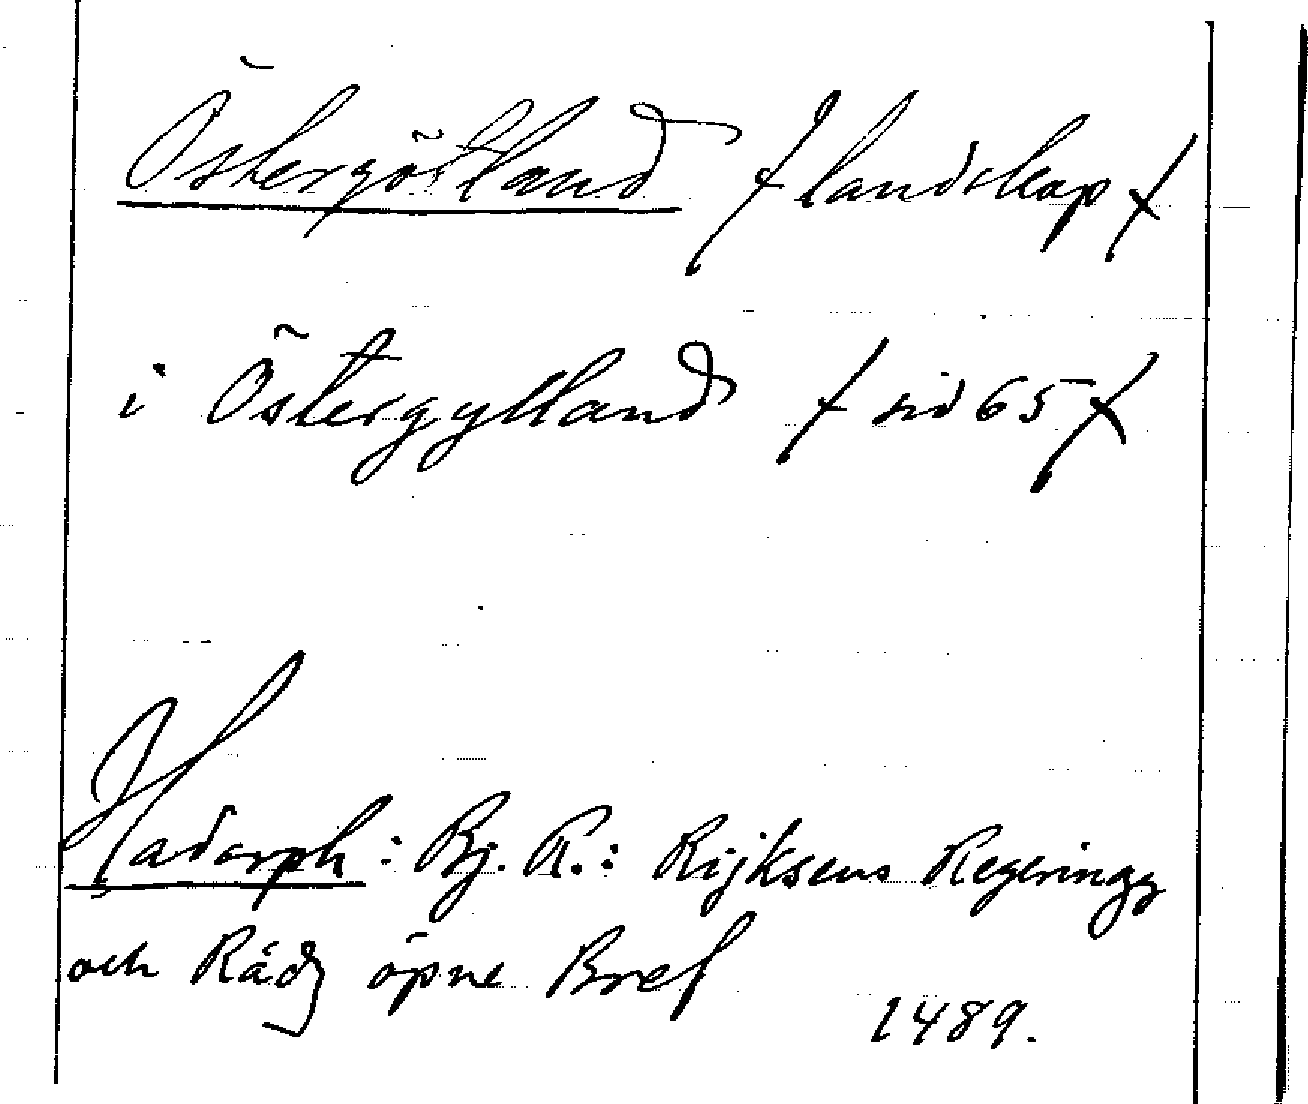 Östergötland / landskap /
i Östergylland / sid 65 /
Hadorph: Bj. R.: Rijksens Regeringz
och Rådz öpne Bref
1489.